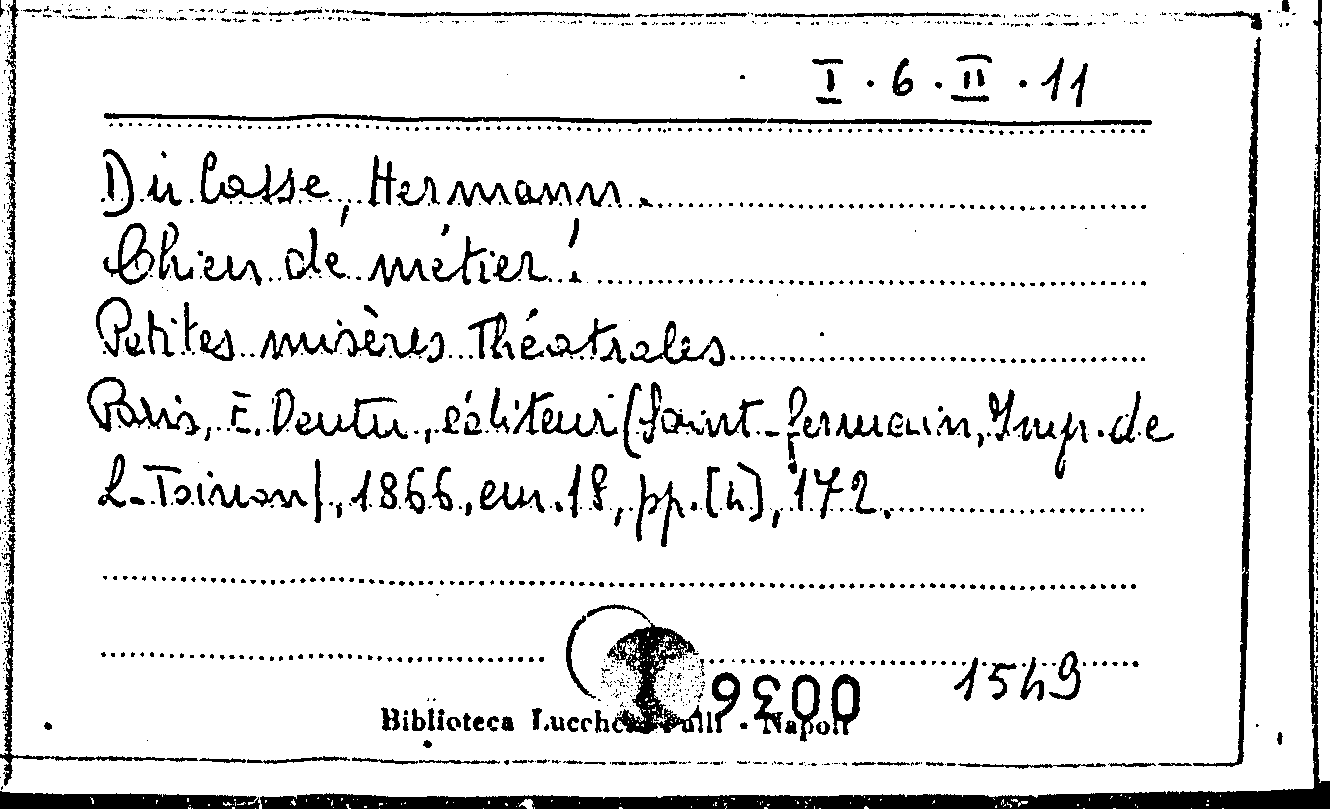 I. 6. II. 11
Du Casse, Hermann.
Chien de métier!
Petites misères théatrales
Paris, E. Dentu, éditeur (Saint-Germain, Imp. de
L-Toinon), 1866, in.18, pp. [4], 172.
0036
1549
Biblioteca Lucchesi Palli - Napoli